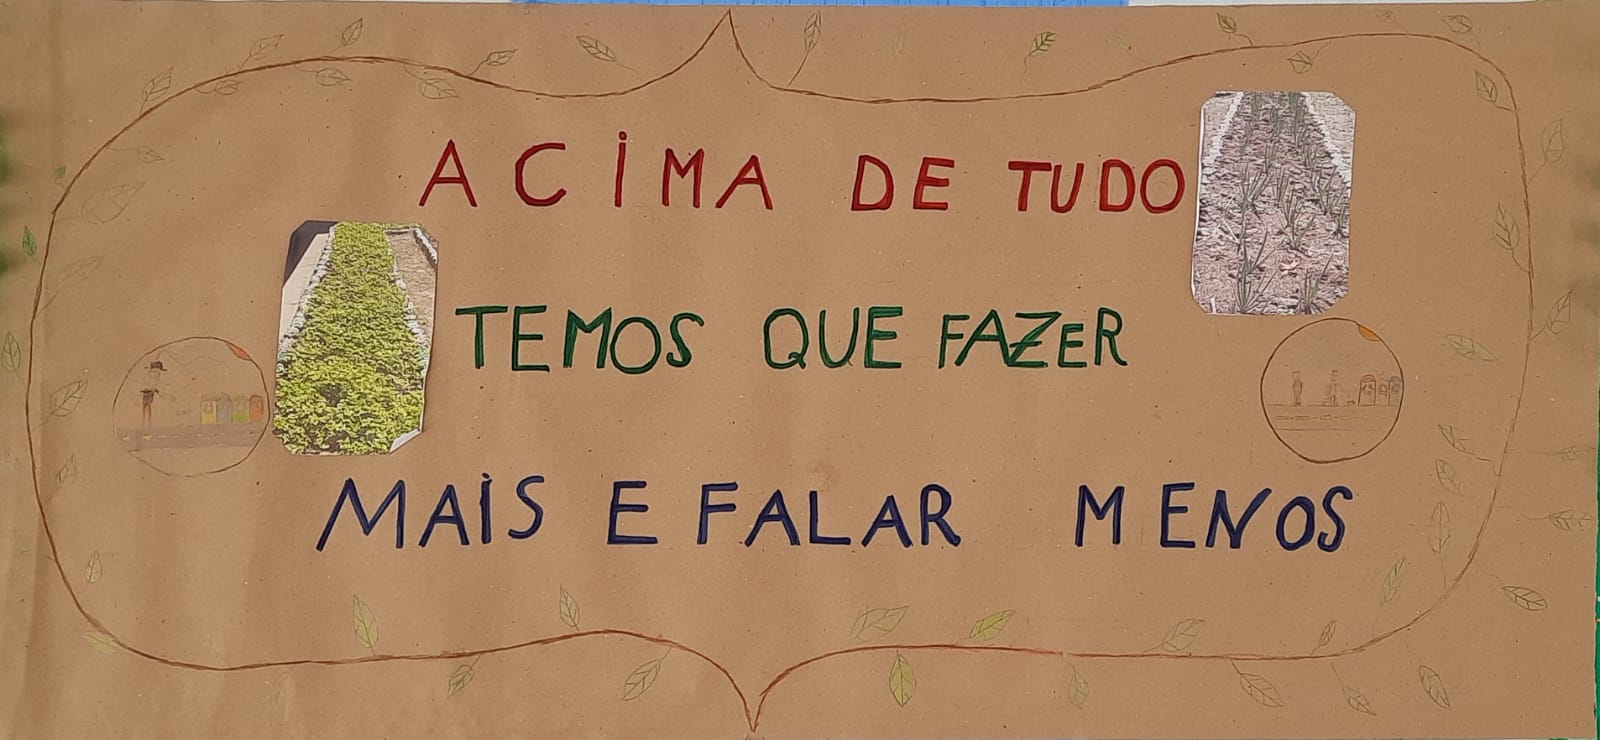 ACIMA DE TUDO
TEMOS QUE FAZER
MAIS E FALAR MENOS